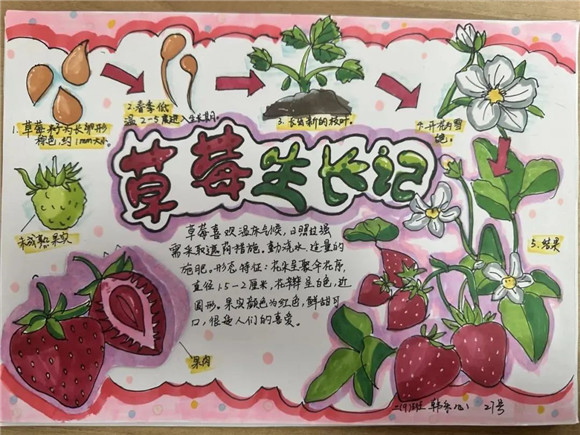 1.草莓籽为长锥形
棕色,约1mm大小。
2.春季低
温2-5度进入生长期。
3.长出新的枝叶。
4.开花为雪
色。
草莓生长记
未成熟果实
5.结果
草莓喜欢温床气候,日照过强
需采取遮荫措施。勤浇水,适量的
施肥。形态特征:花朵呈聚伞花序,
直径1.5-2厘米,花瓣呈白色,近
圆形。果实颜色为红色,鲜甜可
口,很是人们的喜爱。
果肉
27号